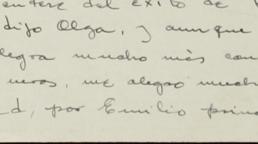 del éxito de
dijo Olga, y aunque
alegra mucho más con
me alegro much
d, por Emilio princ